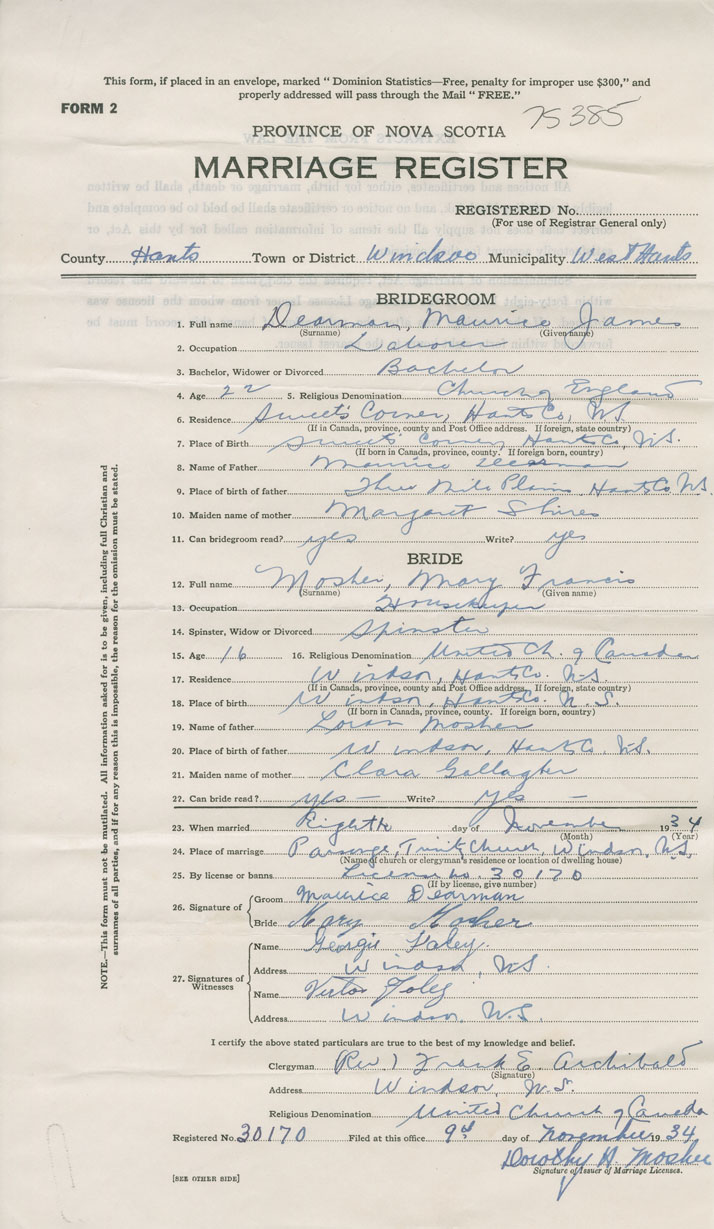 This form, if placed in an envelope, marked " Dominion Statistics—Free, penalty for improper use $300," and
properly addressed will pass through the Mail " FREE."
FORM 2
75385
PROVINCE OF NOVA SCOTIA
MARRIAGE REGISTER
REGISTERED No.
(For use of Registrar General only)
County Hants Town or District Windsor Municipality West Hants
BRIDEGROOM
1. Full name Dearman, Maurice James
(Surname) (Given name)
2. Occupation Laborer
3. Bachelor, Widower or Divorced Bachelor
4. Age 22 5. Religious Denomination Church of England
6. Residence Sweet's Corner, Hants Co, NS
(If in Canada, province, county and Post Office address. If foreign, state country)
7. Place of Birth Sweet's Corner, Hants Co, N.S.
(If born in Canada, province, county. If foreign born, country)
8. Name of Father Maurice Dearman
9. Place of birth of father Three Mile Plains, Hants Co N.S.
10. Maiden name of mother Margaret Shires
11. Can bridegroom read? yes Write? yes
BRIDE
12. Full name Mosher, Mary Francis
(Surname) (Given name)
13. Occupation Housekeeper
14. Spinster, Widow or Divorced Spinster
15. Age 16 16. Religious Denomination United Ch. of Canada
17. Residence Windsor, Hants Co. N.S.
(If in Canada, province, county and Post Office address. If foreign, state country)
18. Place of birth Windsor, Hants Co. N.S.
(If born in Canada, province, county. If foreign born, country)
19. Name of father Loran Mosher
20. Place of birth of father Windsor, Hants Co, N.S.
21. Maiden name of mother Clara Gallagher
22. Can bride read? yes — Write? yes —
23. When married Eighth day of November 1934
(Month) (Year)
24. Place of marriage Parsonage, Trinity Church, Windsor, N.S.
(Name of church or clergyman's residence or location of dwelling house)
25. By license or banns License No. 30170
(If by license, give number)
26. Signature of
Groom Maurice Dearman
Bride Mary Mosher
27. Signatures of
Witnesses
Name Georgie
Address Windsor, NS
Name Victor Foley
Address Windsor N.S.
I certify the above stated particulars are true to the best of my knowledge and belief.
Clergyman (Rev.) Frank E. Archibald
(Signature)
Address Windsor, N.S.
Religious Denomination United Church of Canada
Registered No. 30170 Filed at this office 9th day of November 1934
Dorothy H. Mosher
Signature of Issuer of Marriage Licenses.
[SEE OTHER SIDE]
NOTE.—This form must not be mutilated. All information asked for is to be given, including full Christian and
surnames of all parties, and if for any reason this is impossible, the reason for the omission must be stated.